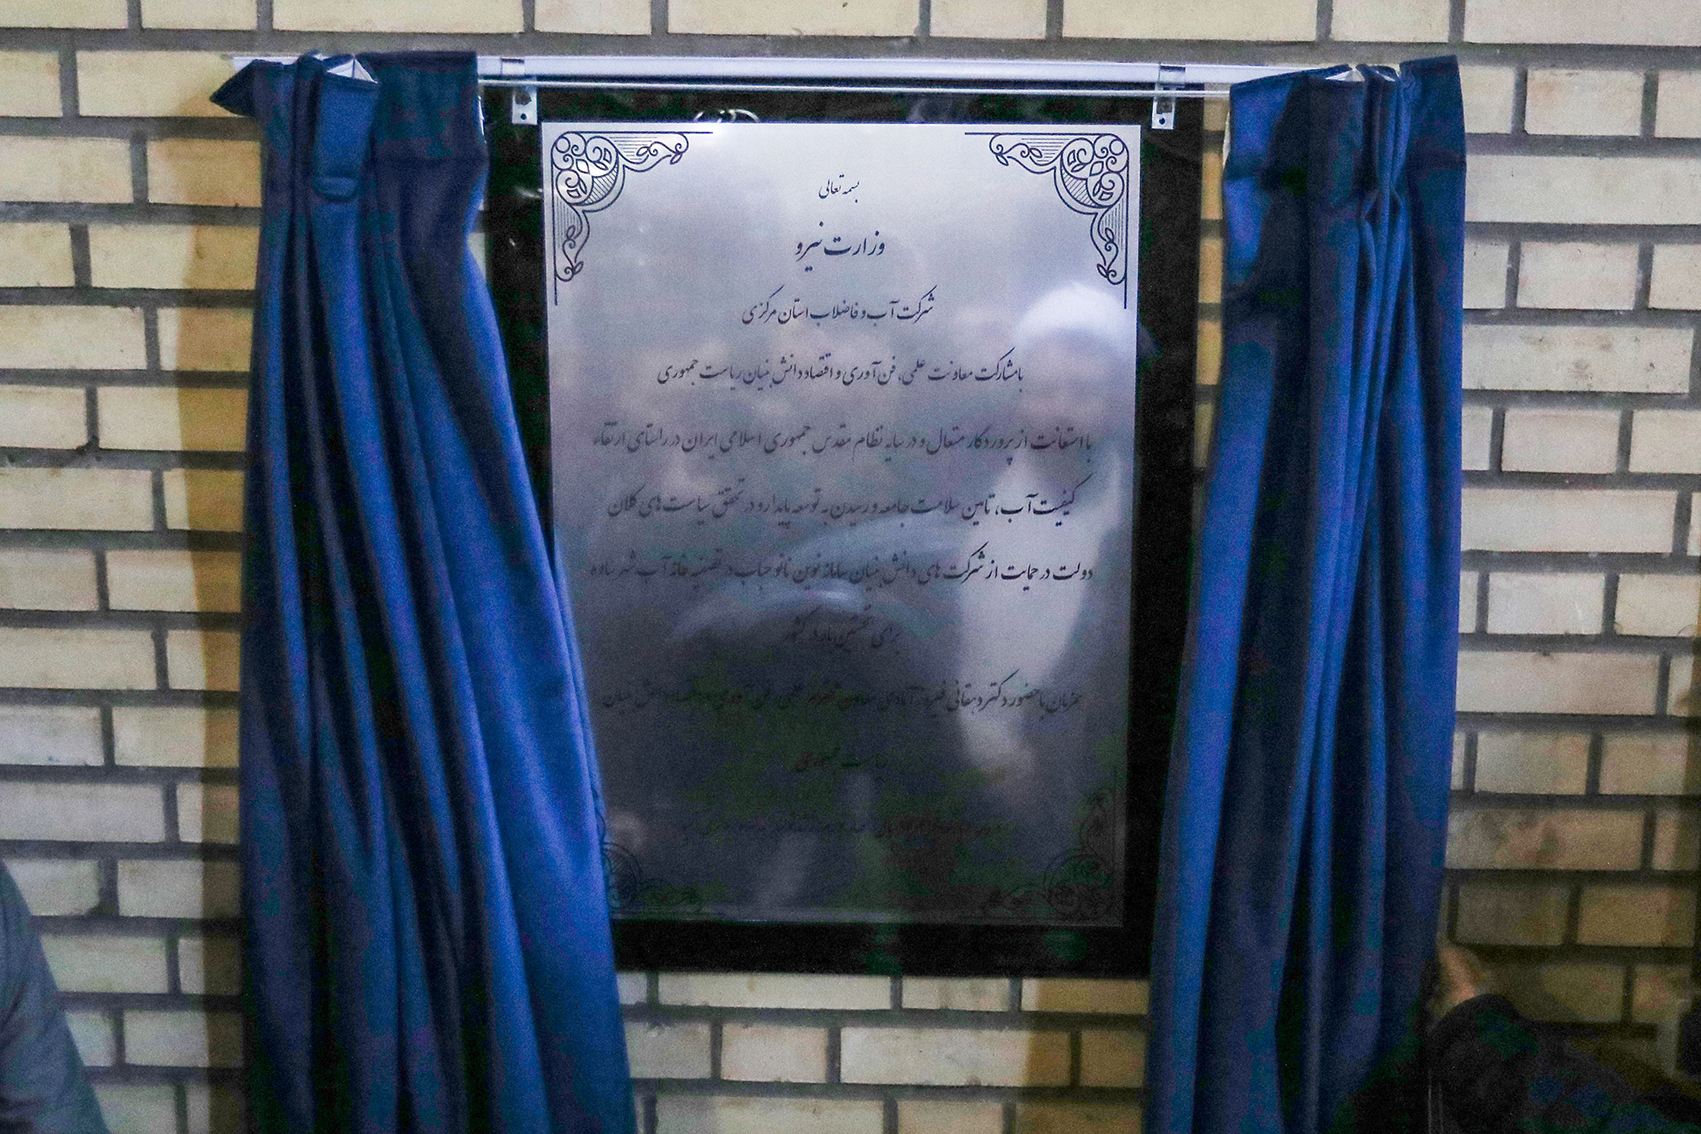 بسمه تعالی
وزارت نیرو
شرکت آب و فاضلاب استان مرکزی
با مشارکت معاونت علمی، فن آوری و اقتصاد دانش بنیان ریاست جمهوری
با استعانت از پروردگار متعال و در سایه نظام مقدس جمهوری اسلامی ایران در راستای ارتقاء
کیفیت آب، تامین سلامت جامعه و رسیدن به توسعه پایدار و در تحقق سیاست های کلان
دولت در حمایت از شرکت های دانش بنیان سامانه نوین نانو حباب در تصفیه خانه آب شهر ساوه
برای نخستین بار در کشور
همزمان با حضور دکتر دهقانی فیروزآبادی معاون علمی، فن آوری دانش بنیان
ریاست جمهوری